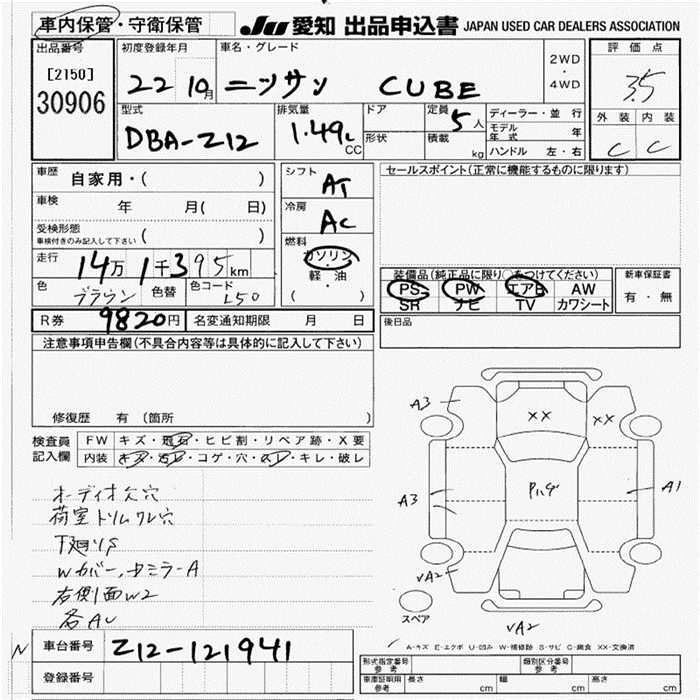 車内保管・守衛保管
JU 愛知 出品申込書 JAPAN USED CAR DEALERS ASSOCIATION
出品番号
[2150]
30906
初度登録年月
22 10月
車名・グレード
ニッサン CUBE
2WD
・
4WD
評価点
3.5
外装 内装
C C
型式
DBA-Z12
排気量
1.49L
CC
ドア
形状
定員
5人
積載
kg
ディーラー・並行
モデル年式 年
ハンドル 左・右
車歴
自家用・( )
車検
年 月( 日)
受検形態
車検付きのみ記入して下さい ( )
走行
14万1千395km
色
ブラウン
色替
色コード
L50
R券 9820円
名変通知期限 月 日
シフト
AT
冷房
AC
燃料
ガソリン
・
軽・油
( )
セールスポイント(正常に機能するものに限ります)
装備品(純正品に限り○をつけてください)
PS PW エアB AW
SR ナビ TV カワシート
新車保証書
有・無
後日品
注意事項申告欄(不具合内容等は具体的に記入して下さい)
修復歴 有 (箇所 )
検査員
記入欄
FW キズ・飛石・ヒビ割・リペア跡・X要
内装 キズ・汚レ・コゲ・穴・スレ・キレ・破レ
オーディオ欠穴
荷室トリムワレ穴
下廻りS
Wカバー、中ミラーA
右側面W2
各AU
A3
XX
XX
A3
A1
√A2
スペア
√A2
A-キズ E-エクボ U-凹み W-補修跡 S-サビ C-腐食 XX-交換済
N
車台番号
Z12-121941
登録番号
形式指定番号
参考
類別区分番号
参考
車庫証明用
参考
長さ cm
幅 cm
高さ cm